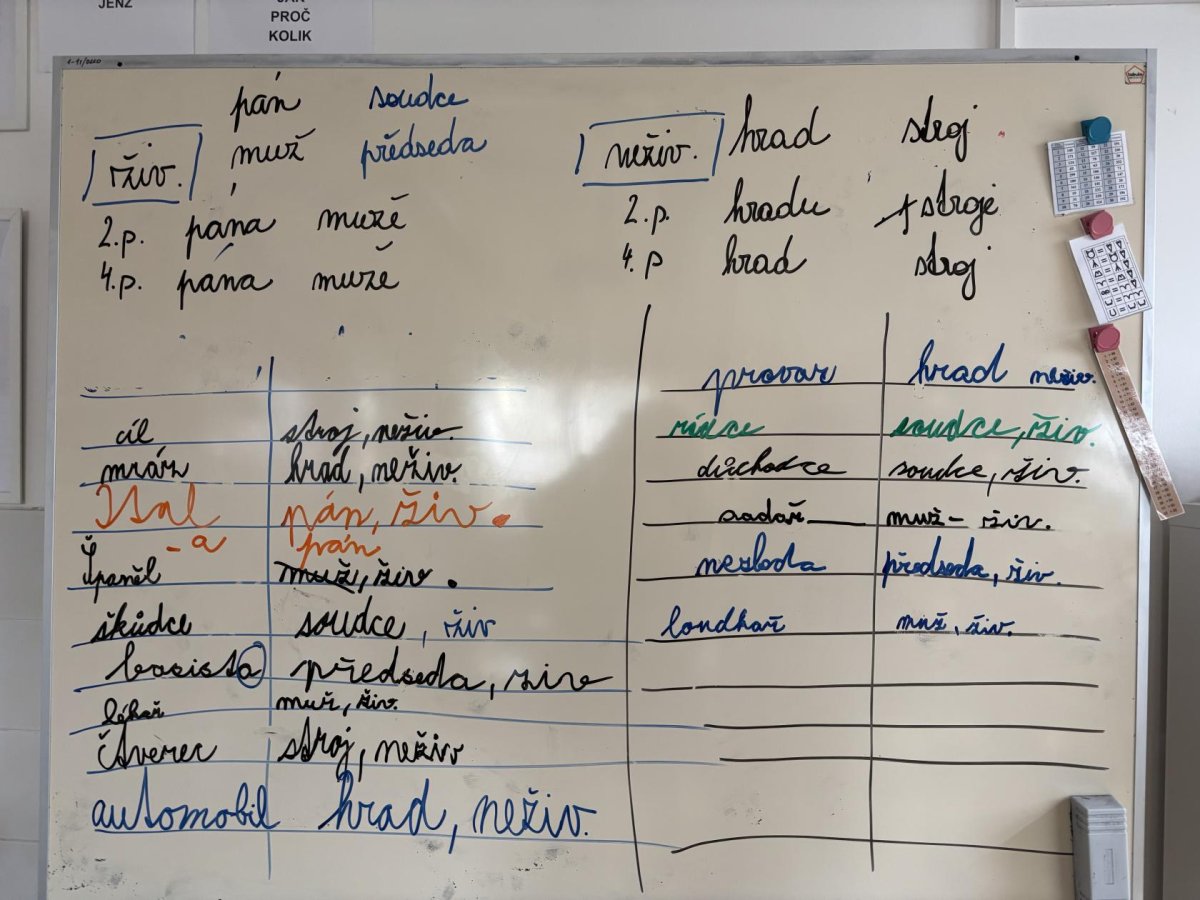 JENŽ
JAK
PROČ
KOLIK
pán soudce
živ. muž předseda
2.p. pána mužě
4.p. pána muže
neživ. hrad stroj
2.p. hradu stroje
4.p hrad stroj
cíl stroj, neživ.
mráz hrad, neživ.
Ital pán, živ.
-a pán
Španěl muž, živ.
škůdce soudce, živ
basista předseda, živ
lékař muž, živ.
čtverec stroj, neživ
automobil hrad, neživ.
provaz hrad neživ.
rádce soudce, živ.
důchodce soudce, živ.
sadař muž - živ.
nezbeda předseda, živ.
loudkař muž, živ.